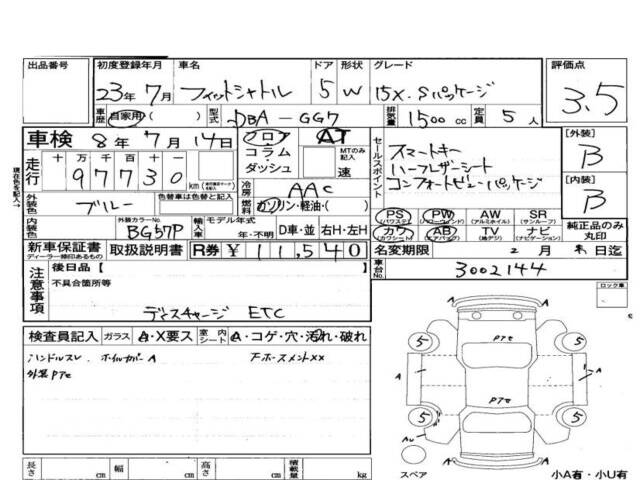 出品番号 初度登録年月 車名 ドア 形状 グレード 評価点
23年7月 フィットシャトル 5 W 15X.Sパッケージ 3.5
車歴 自家用( ) 型式 DBA-GG7 排気量 1500cc 定員 5人
車検 8年7月14日 フロア AT セールスポイント [外装]
走行 十万千百十一 コラム・ダッシュ MTのみ記入 速 スマートキー B
97730 km ハーフレザーシート
冷房 AAC コンフォートビューパッケージ [内装]
外装色 ブルー 色替車は色替と記入 燃料 ガソリン・軽油・( ) B
内装色 外装カラーNo. BG57P 輸入車 モデル年式 年・不明 D車・並 右H・左H
PS(パワステ) PW(パワーウィンド) AW(アルミホイル) SR(サンルーフ)
カワ(カワシート) AB(エアバック) TV(地デジ) ナビ(ナビゲーション) 純正品のみ丸印
新車保証書 ディーラー捺印あるもの 取扱説明書 R券 ¥11,540 名変期限 2月末日迄
注意事項 後日品[ ] 車台No. 3002144
不具合箇所等 ロック車
ディスチャージ ETC
検査員記入 ガラス A・X要ス 室内シート A・コゲ・穴・汚れ・破れ
ハンドルスレ. ホイルカバーA 下ホースメントXX
外装PTセ
PTセ
5 5
A A
PTセ
5 5
AU
A
長さ cm 幅 cm 高さ cm 積載量 kg スペア 小A有・小U有
現在色を記入→